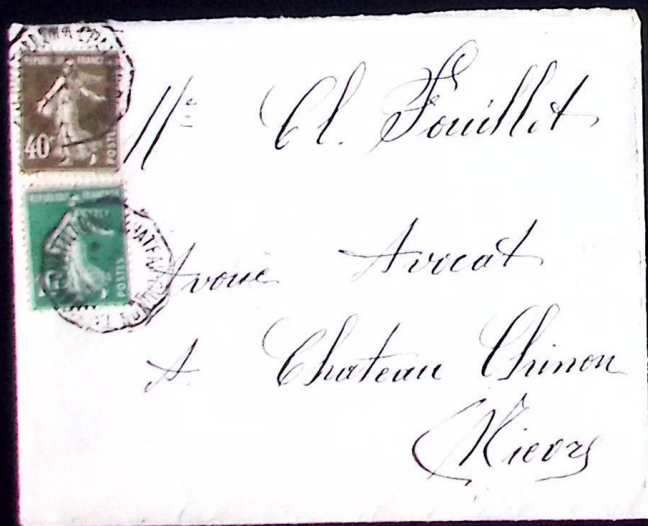 REPUBLIQUE FRANCAISE
40c
POSTES
REPUBLIQUE FRANCAISE
POSTES
Me Cl. Fouillet
Avoué Avocat
A. Chateau Chinon
Nievre